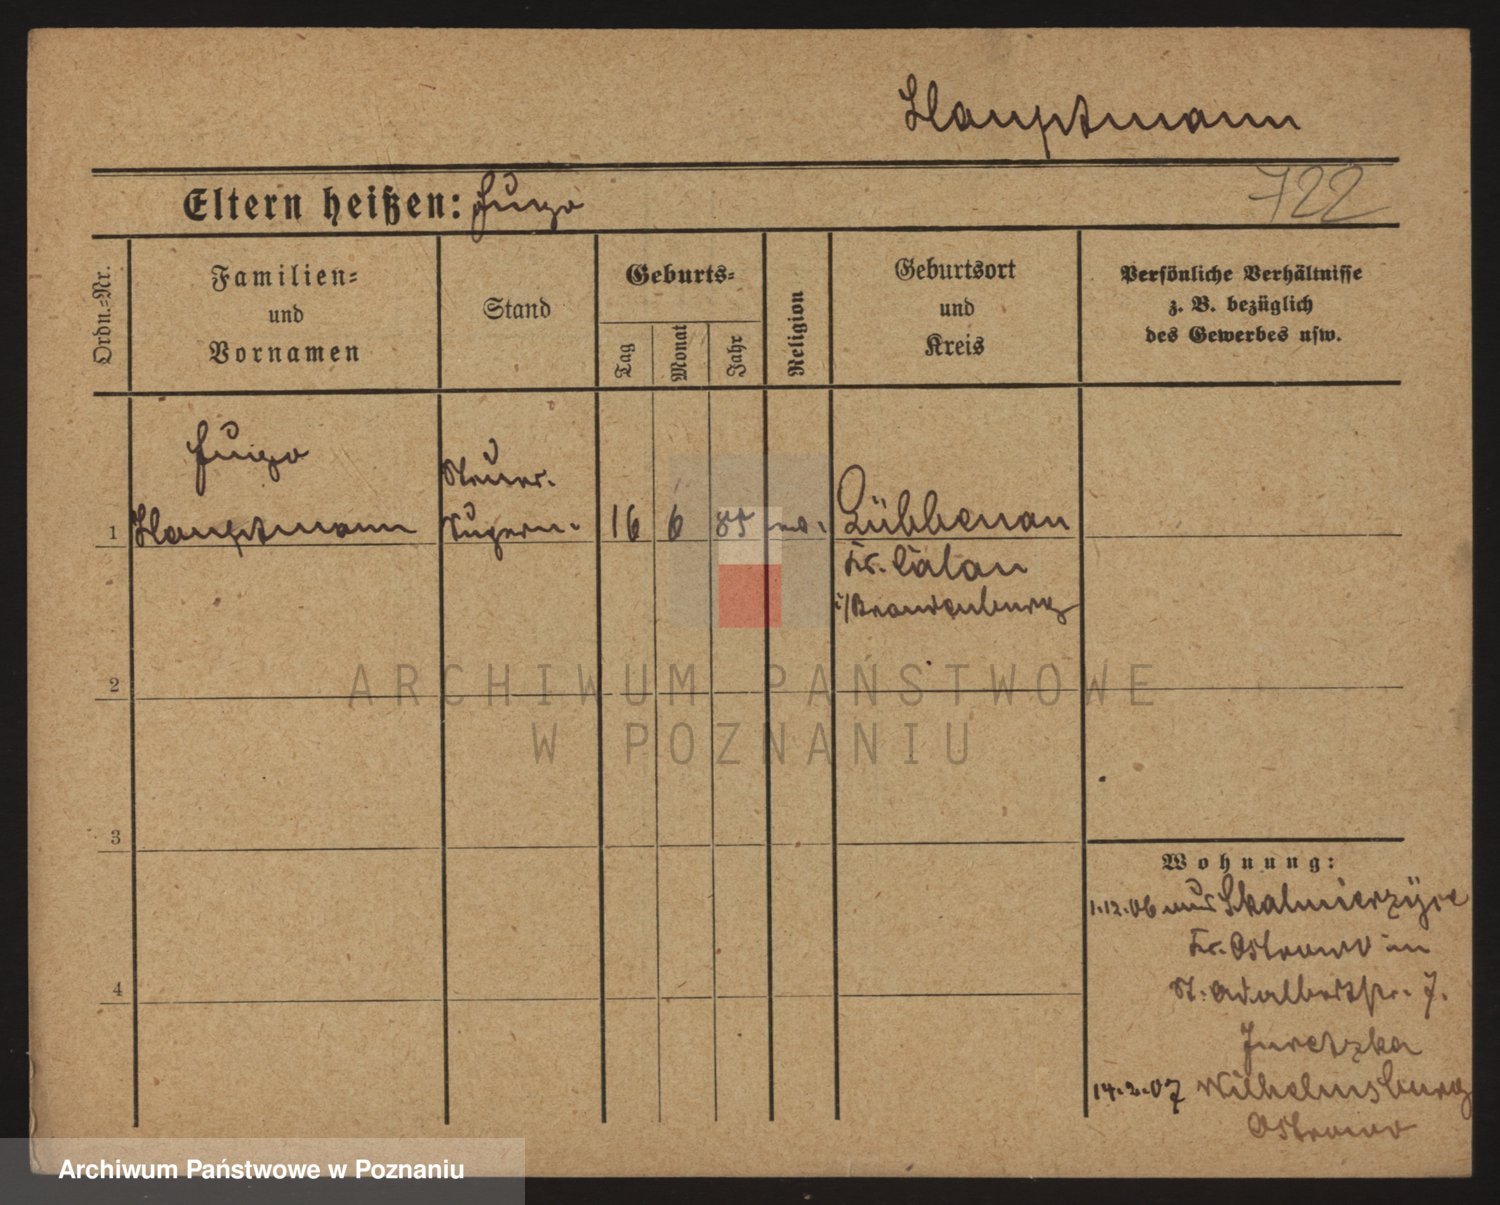 Hauptmann
722
Eltern heißen: Hugo
Ordn.-Nr.
Familien-
und
Vornamen
Stand
Geburts-
Tag
Monat
Jahr
Religion
Geburtsort
und
Kreis
Persönliche Verhältnisse
z. B. bezüglich
des Gewerbes usw.
Hugo
Steuer-
1 Hauptmann Supern. 16 6 85 ev. Lübbenau
Kr. Calau
i/Brandenburg
2
ARCHIWUM PAŃSTWOWE
W POZNANIU
3
Wohnung:
1.12.06 aus Skalmierzyce
Kr. Ostrowo in
St. Adalbertstr. 7.
Juretzka
4
14.2.07 Wilhelmsburg
Ostrowo
Archiwum Państwowe w Poznaniu